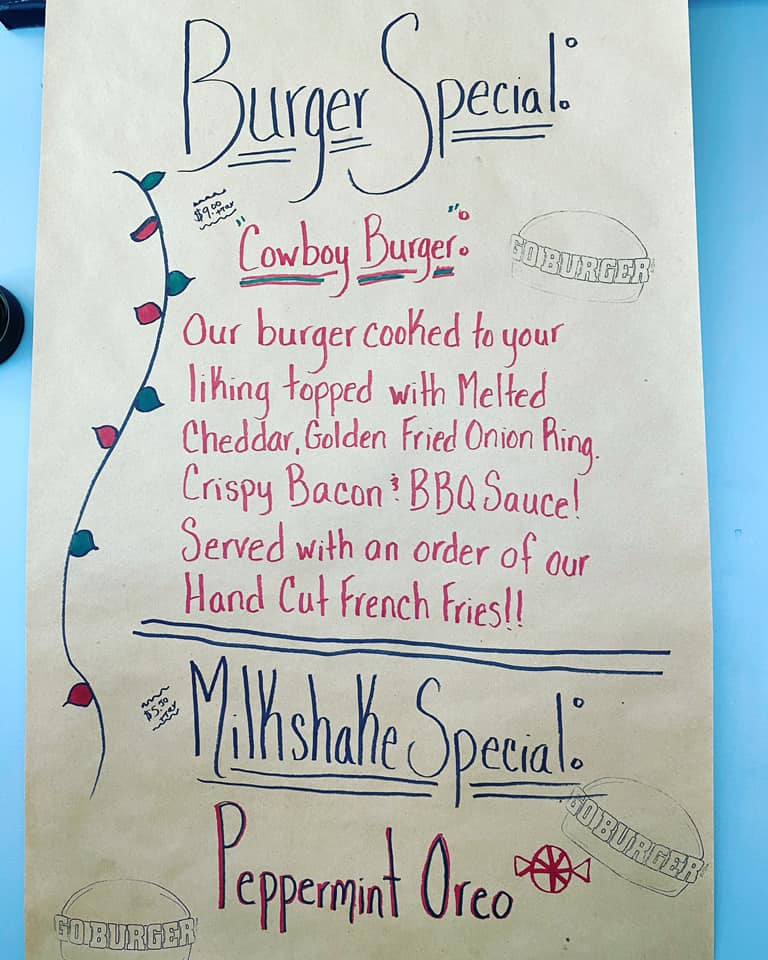 Burger Special:
$9.00
+tax
"Cowboy Burger":
GOBURGER
Our burger cooked to your
liking topped with Melted
Cheddar, Golden Fried Onion Ring,
Crispy Bacon & BBQ Sauce!
Served with an order of our
Hand Cut French Fries!!
$5.50
+tax
Milkshake Special:
GOBURGER
Peppermint Oreo
GOBURGER